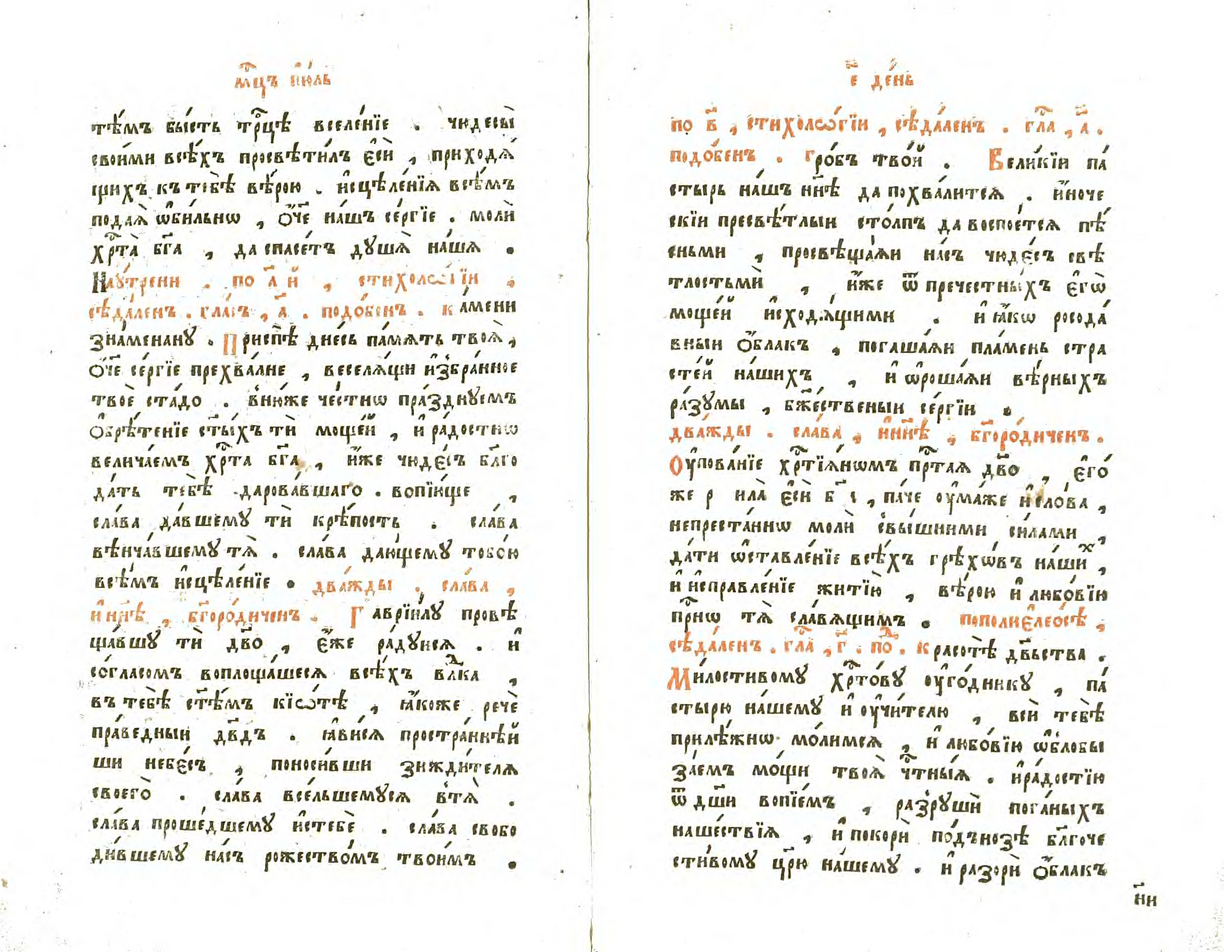 мⷭ҇цъ їю́ль
тѣ́мъ бы́сть трⷪ҇цѣ вселе́нїе . чюдесы̀
свои́ми всѣ́хъ просвѣти́лъ є҆сѝ , приходѧ́
щихъ къ тебѣ̀ вѣ́рою . и҆сцѣле́нїѧ всѣ́мъ
пода́ѧ ѡ҆би́льнѡ , ѻ҆́ч҃е на́шъ се́ргїе . молѝ
хрⷭ҇та̀ бг҃а , да спасе́тъ дꙋшѧ̀ на́шѧ .
Наꙋ́трени . по а҃ й , стихоло́гїи ,
сѣда́ленъ . гла́съ , а҃ . подо́бенъ . ка́мени
зна́менанꙋ . Приспѣ̀ дне́сь па́мѧть твоѧ̀ ,
ѻ҆́ч҃е се́ргїе прехва́лне , веселѧ́щи и҆збра́нное
твоѐ ста́до . в̾ню́же че́стнѡ пра́зднꙋемъ
ѻ҆брѣ́тенїе ст҃ы́хъ тѝ моще́й , и҆ ра́достнѡ
велича́емъ хрⷭ҇та̀ бг҃а , и҆́же чюде́съ бл҃го
да́ть тебѣ̀ дарова́вшаго . вопїю́ще ,
сла́ва да́вшемꙋ тѝ крѣ́пость . сла́ва
вѣнча́вшемꙋ тѧ̀ . сла́ва даю́щемꙋ тобо́ю
всѣ́мъ и҆сцѣле́нїе . два́жды . сла́ва ,
и҆ ны́нѣ , бг҃оро́диченъ . Гаврїи́лꙋ провѣ
ща́вшꙋ тѝ дв҃о , є҆́же ра́дꙋисѧ . и҆
со́гласомъ воплоща́шесѧ всѣ́хъ влⷣка ,
въ тебѣ̀ ст҃ѣ́мъ кїѡ́тѣ , ꙗ҆́коже речѐ
пра́ведныи дв҃дъ . ꙗ҆ви́сѧ простра́ннѣй
ши небе́съ , поноси́вши зижди́телѧ
своего̀ . сла́ва все́льшемꙋсѧ в̾тѧ̀ .
сла́ва проше́дшемꙋ и҆стебѐ . сла́ва свобо
ди́вшемꙋ на́съ рожество́мъ твои́мъ .
є҃ де́нь
по в҃ , стихоло́гїи , сѣда́ленъ . гла́ , а҃ .
подо́бенъ . гро́бъ тво́й . Вели́кїи па́
стырь на́шъ нн҃ѣ да похва́литсѧ . и҆́ноче
скїи пресвѣ́тлыи сто́лпъ да воспое́тсѧ пѣ́
сньми , просвѣща́ѧи на́съ чюде́съ свѣ́
тлостьмѝ , и҆́же ѿ пречестны́хъ є҆гѡ̀
моще́й и҆сходѧ́щими . и҆ ꙗ҆́кѡ росода́
вныи ѻ҆́блакъ , погаша́ѧи пла́мень стра
сте́й на́шихъ , и҆ ѡ҆роша́ѧи вѣ́рныхъ
ра́зꙋмы , бж҃е́ственыи се́ргїи .
два́жды . сла́ва , и҆ ны́нѣ , бг҃оро́диченъ .
Оу҆пова́нїе хрⷭ҇тїѧ́нѡмъ прⷭ҇таѧ дв҃о , є҆го́
же р ила̀ є҆сѝ б , па́че оу҆ма́же и҆ сло́ва ,
непреста́ннѡ молѝ свы́шними си́лами ,
да́ти ѡ҆ставле́нїе всѣ́хъ грѣхѡ́въ на́шиⷯ ,
и҆ и҆справле́нїе житїю̀ , вѣ́рою и҆ любо́вїю
прⷭ҇нѡ тѧ̀ сла́вѧщимъ . пополиє҆ле́осѣ ,
сѣда́ленъ . гла́ , г҃ . по́ⷣ . красотѣ̀ дв҃ьства .
Ми́лостивомꙋ хрⷭ҇то́вꙋ оу҆го́дникꙋ , па́
стырю на́шемꙋ и҆ оу҆чи́телю , всѝ тебѣ̀
прилѣ́жнѡ мо́лимсѧ , и҆ любо́вїю ѡ҆блобы
за́емъ мо́щи твоѧ̀ чⷭ҇тны́ѧ . и҆ ра́достїю
ѿ дш҃и вопїе́мъ , разрꙋшѝ пога́ныхъ
наше́ствїѧ , и҆ покорѝ по́дънозѣ бл҃гоче
сти́вомꙋ цр҃ю на́шемꙋ . и҆ разорѝ ѻ҆́блакъ
н҃и